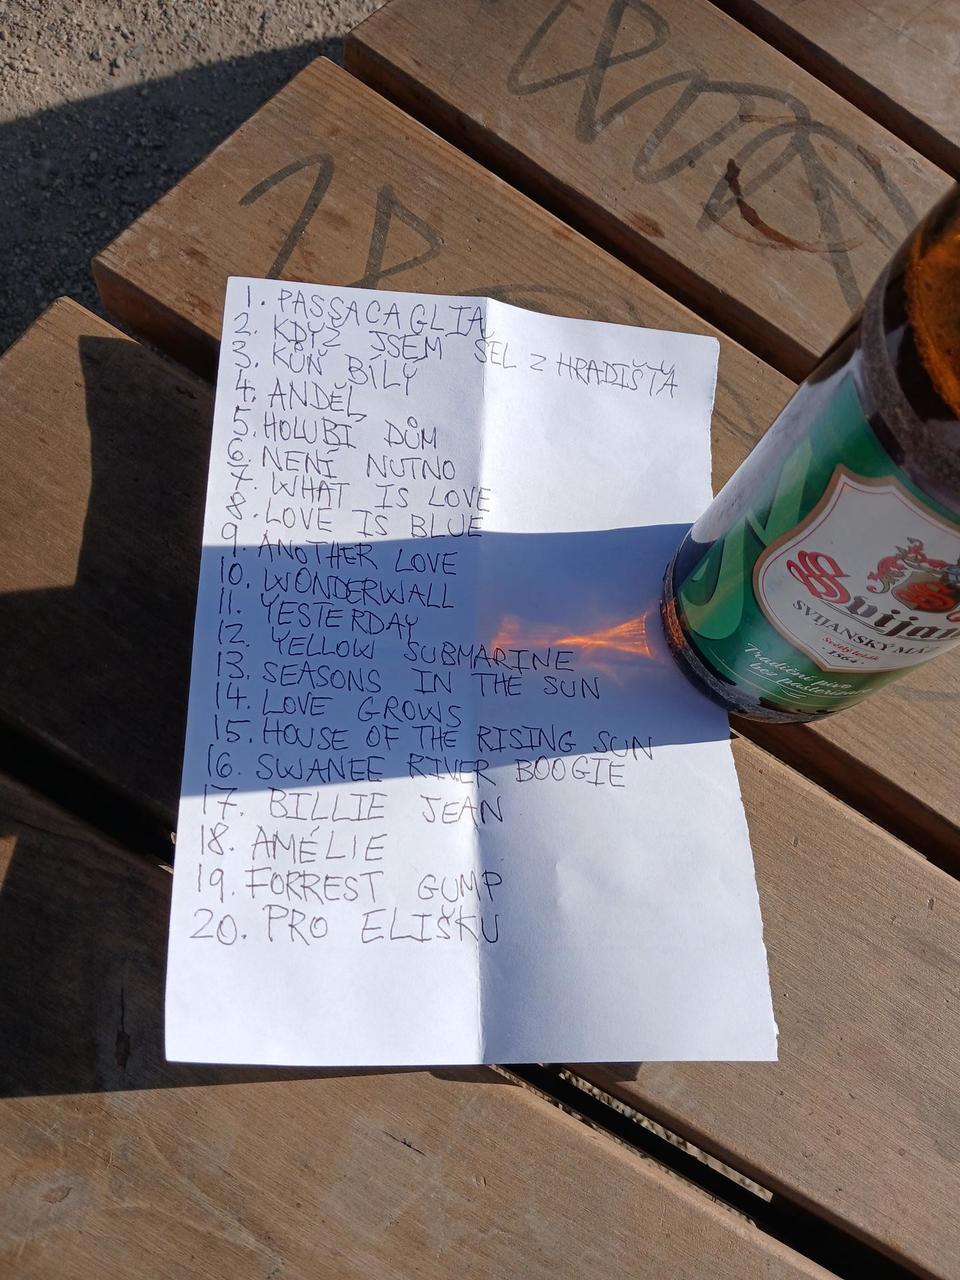 1. PASSACAGLIA
2. KDYŽ JSEM ŠEL Z HRADIŠŤA
3. KŮŇ BÍLÝ
4. ANDĚL
5. HOLUBÍ DŮM
6. NENÍ NUTNO
7. WHAT IS LOVE
8. LOVE IS BLUE
9. ANOTHER LOVE
10. WONDERWALL
11. YESTERDAY
12. YELLOW SUBMARINE
13. SEASONS IN THE SUN
14. LOVE GROWS
15. HOUSE OF THE RISING SUN
16. SWANEE RIVER BOOGIE
17. BILLIE JEAN
18. AMÉLIE
19. FORREST GUMP
20. PRO ELIŠKU
Svijan
SVIJANSKÝ MÁZ
Světlý ležák
1564
Tradiční pivo
bez pasteriza